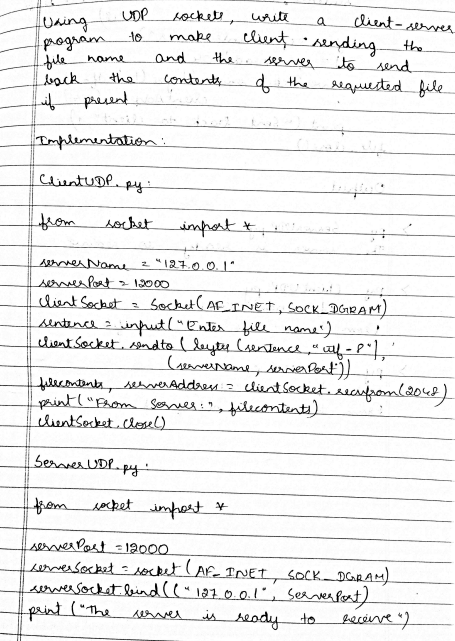 Using UDP sockets, write a client-server
program to make client sending the
file name and the server to send
back the contents of the requested file
if present
Implementation:
ClientUDP.py:
from socket import *
serverName = "127.0.0.1"
serverPort = 12000
clientSocket = Socket(AF_INET, SOCK_DGRAM)
sentence = input("Enter file name")
clientSocket.sendto (bytes (sentence, "utf-8"),
(serverName, serverPort))
filecontents, serverAddress = clientSocket.recvfrom(2048)
print("From Server:", filecontents)
clientSocket.close()
ServerUDP.py:
from socket import *
serverPort = 12000
serverSocket = socket (AF_INET, SOCK_DGRAM)
serverSocket.bind(("127.0.0.1", ServerPort)
print ("The server is ready to receive")